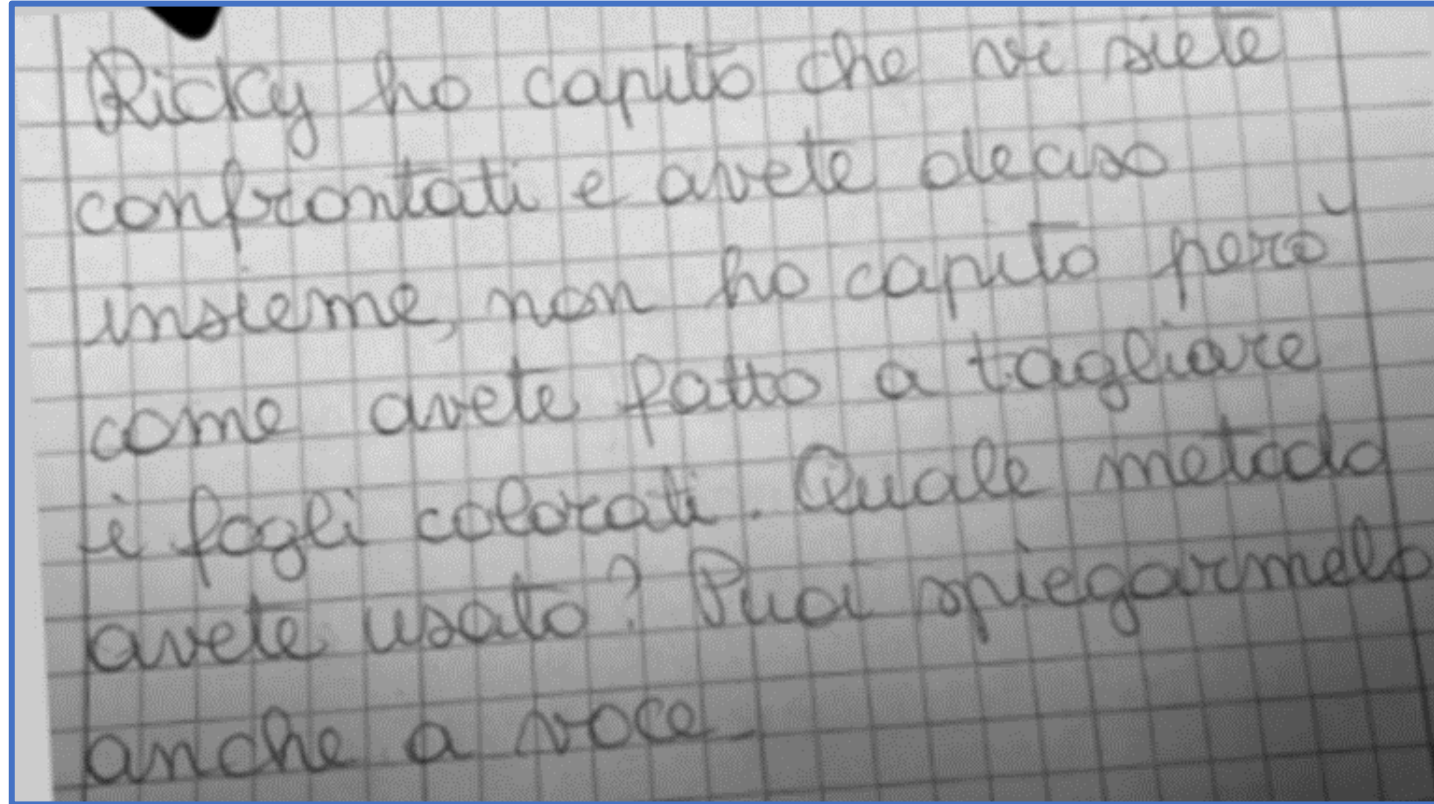 Ricky ho capito che vi siete
confrontati e avete deciso
insieme, non ho capito però
come avete fatto a tagliare
i fogli colorati. Quale metodo
avete usato? Puoi spiegarmelo
anche a voce.